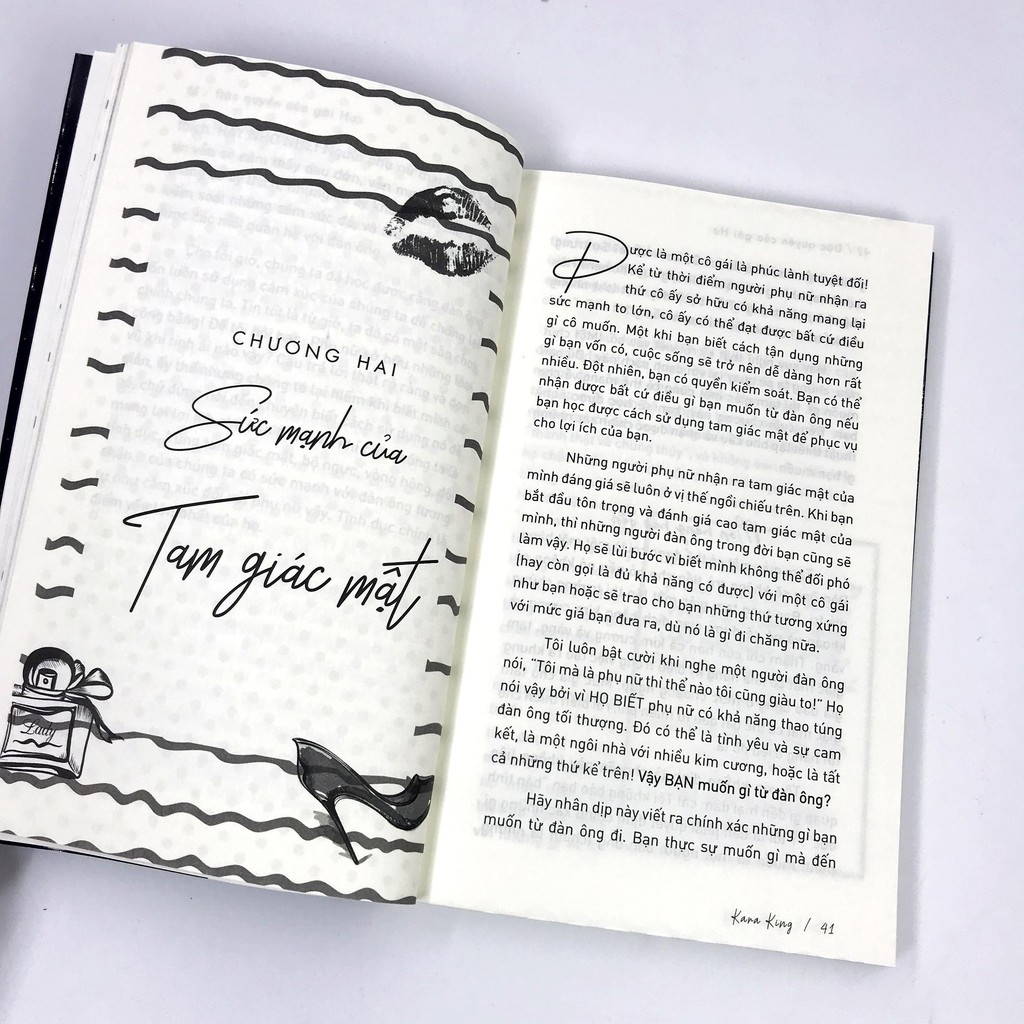 CHƯƠNG HAI
Sức mạnh của
Tam giác mật
Lady
Được là một cô gái là phúc lành tuyệt đối!
Kể từ thời điểm người phụ nữ nhận ra
thứ cô ấy sở hữu có khả năng mang lại
sức mạnh to lớn, cô ấy có thể đạt được bất cứ điều
gì cô muốn. Một khi bạn biết cách tận dụng những
gì bạn vốn có, cuộc sống sẽ trở nên dễ dàng hơn rất
nhiều. Đột nhiên, bạn có quyền kiểm soát. Bạn có thể
nhận được bất cứ điều gì bạn muốn từ đàn ông nếu
bạn học được cách sử dụng tam giác mật để phục vụ
cho lợi ích của bạn.
Những người phụ nữ nhận ra tam giác mật của
mình đáng giá sẽ luôn ở vị thế ngồi chiếu trên. Khi bạn
bắt đầu tôn trọng và đánh giá cao tam giác mật của
mình, thì những người đàn ông trong đời bạn cũng sẽ
làm vậy. Họ sẽ lùi bước vì biết mình không thể đối phó
(hay còn gọi là đủ khả năng có được) với một cô gái
như bạn hoặc sẽ trao cho bạn những thứ tương xứng
với mức giá bạn đưa ra, dù nó là gì đi chăng nữa.
Tôi luôn bật cười khi nghe một người đàn ông
nói, "Tôi mà là phụ nữ thì thể nào tôi cũng giàu to!" Họ
nói vậy bởi vì HỌ BIẾT phụ nữ có khả năng thao túng
đàn ông tối thượng. Đó có thể là tình yêu và sự cam
kết, là một ngôi nhà với nhiều kim cương, hoặc là tất
cả những thứ kể trên! Vậy BẠN muốn gì từ đàn ông?
Hãy nhân dịp này viết ra chính xác những gì bạn
muốn từ đàn ông đi. Bạn thực sự muốn gì mà đến
Kara King / 41